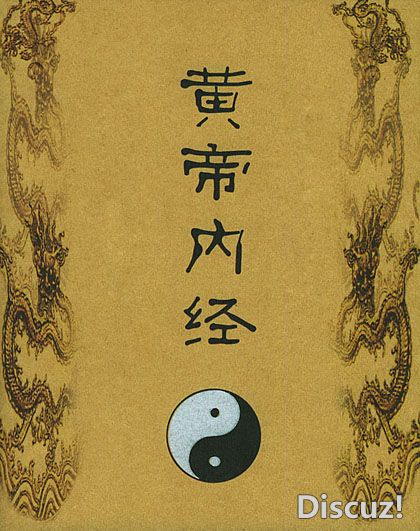 黄帝内经
Discuz!